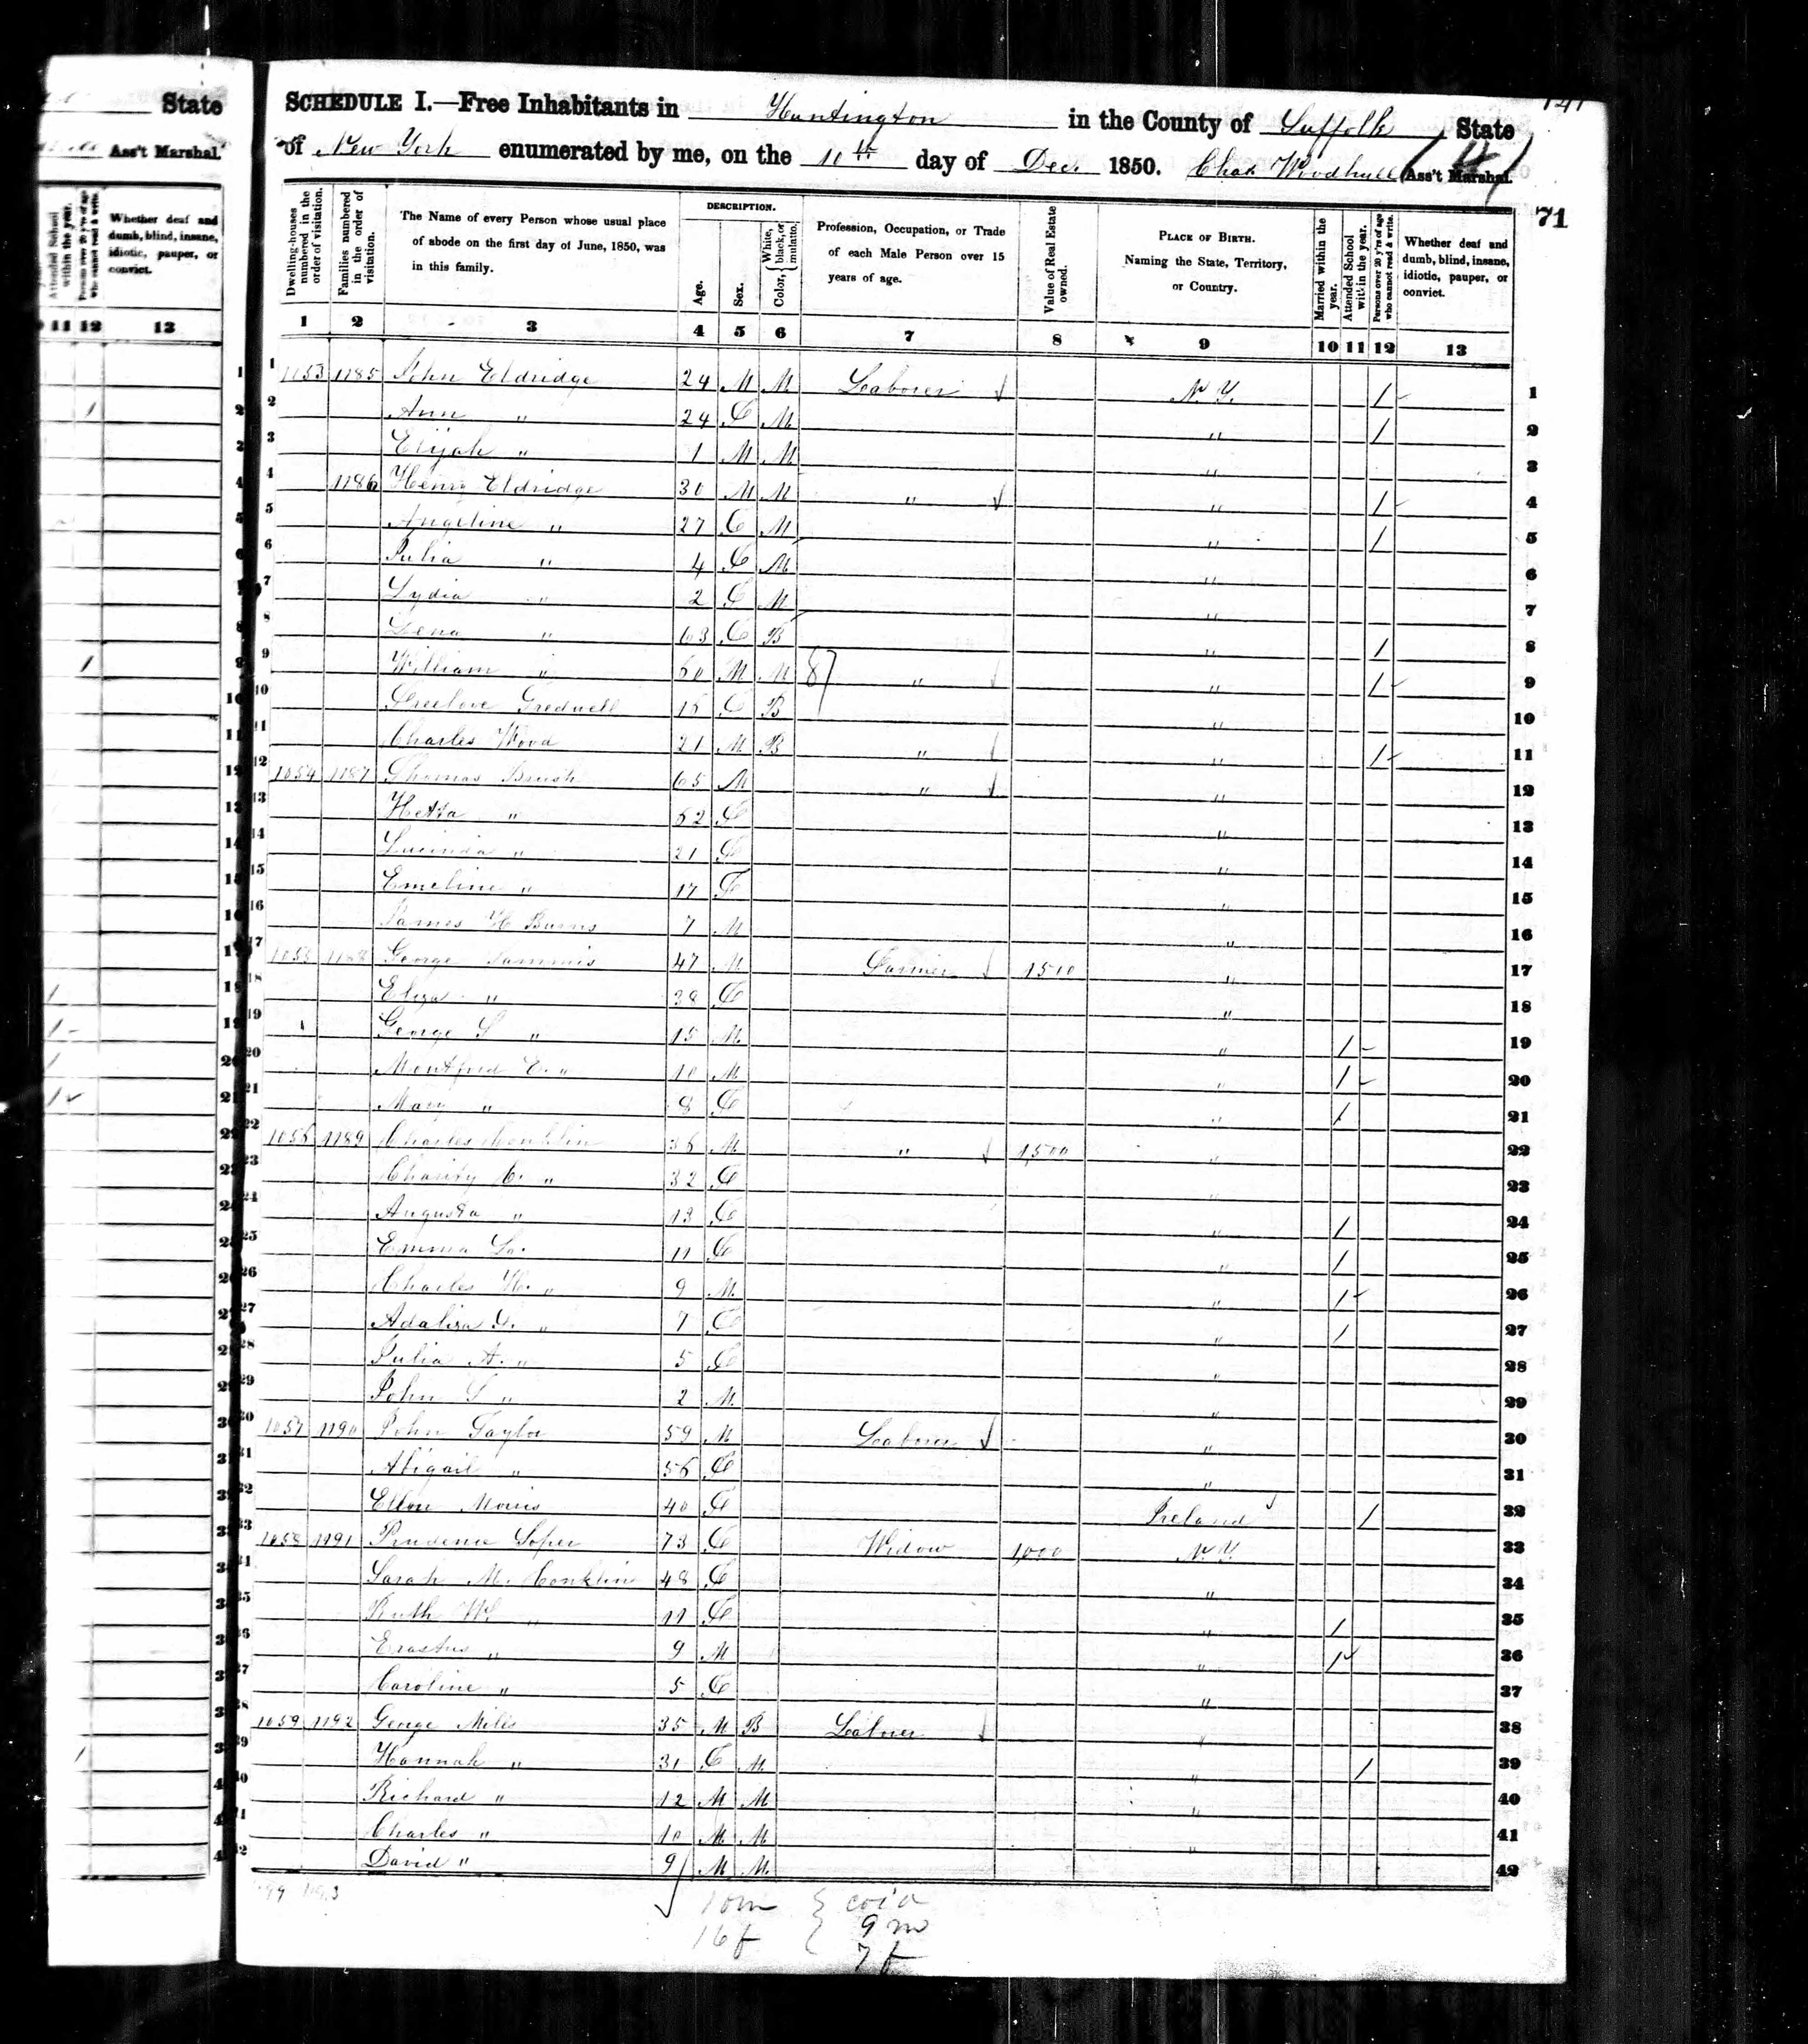 State
Ass't Marshal.
Attended School within the year.
Persons over 20 y'rs of age who cannot read & write.
Whether deaf and dumb, blind, insane, idiotic, pauper, or convict.
11 12 13
SCHEDULE I.—Free Inhabitants in Huntington in the County of Suffolk State
of New York enumerated by me, on the 10th day of Dec. 1850. Chas Woodhull Ass't Marshal.
71
Dwelling-houses numbered in the order of visitation.
Families numbered in the order of visitation.
The Name of every Person whose usual place of abode on the first day of June, 1850, was in this family.
DESCRIPTION.
Age.
Sex.
Color, { White, black, or mulatto.
Profession, Occupation, or Trade of each Male Person over 15 years of age.
Value of Real Estate owned.
PLACE OF BIRTH. Naming the State, Territory, or Country.
Married within the year.
Attended School within the year.
Persons over 20 y'rs of age who cannot read & write.
Whether deaf and dumb, blind, insane, idiotic, pauper, or convict.
1 2 3 4 5 6 7 8 9 10 11 12 13
1 1053 1185 John Eldridge 24 M M Laborer N.Y. / 1
2 Ann " 24 F M " / 2
3 Elijah " 1 M M " 3
4 1186 Henry Eldridge 30 M M " " / 4
5 Angeline " 27 F M " / 5
6 Julia " 4 F M " 6
7 Lydia " 2 F M " 7
8 Dena " 63 F B " / 8
9 William " 60 M M " " / 9
10 Freelove Gredwell 15 F B " 10
11 Charles Wood 21 M B " " / 11
12 1054 1187 Thomas Brush 65 M " " 12
13 Hetta " 62 F " 13
14 Lucinda " 21 F " 14
15 Emeline " 17 F " 15
16 James H Burns 7 M " 16
17 1055 1188 George Sammis 47 M Farmer 1500 " 17
18 Eliza " 38 F " 18
19 George S " 15 M " / 19
20 Montford E. " 10 M " / 20
21 Mary " 8 F " / 21
22 1056 1189 Charles Conklin 36 M " 1,500 " 22
23 Charity C. " 32 F " 23
24 Augusta " 13 F " / 24
25 Emma La. 11 F " / 25
26 Charles H. " 9 M " / 26
27 Adaliza G. " 7 F " / 27
28 Julia A. " 5 F " 28
29 John S " 2 M " 29
30 1057 1190 John Taylor 59 M Laborer " 30
31 Abigail " 56 F " 31
32 Ellen Morris 40 F Ireland / 32
33 1058 1191 Prudence Soper 73 F Widow 1,000 N.Y. 33
34 Sarah M. Conklin 48 F " 34
35 Ruth " 11 F " / 35
36 Erastus " 9 M " / 36
37 Caroline " 5 F " 37
38 1059 1192 George Miles 35 M B Laborer " 38
39 Hannah " 31 F M " / 39
40 Richard " 12 M M " 40
41 Charles " 10 M M " 41
42 David " 9 M M 42
10m } col'd
16f } 9 m
7 f